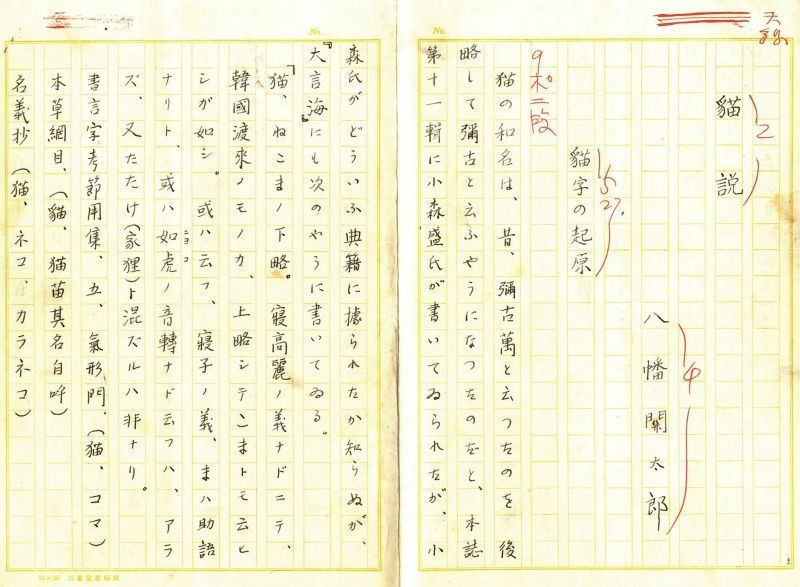 No.
貓説
八幡関太郎
貓字の起原
猫の和名は、昔、彌古萬と云つたのを後
略して彌古と云ふやうになつたのだと、本誌
第十一輯に小森盛氏が書いてゐられたが、小
No.
森氏がどういふ典籍に據られたか知らぬが、
『大言海』にも次のやうに書いてゐる。
「猫」ねこまノ下略。寝高麗ノ義ナドニテ、
韓國渡來ノモノカ、上略シテこまトモ云ヒ
シガ如シ。或ハ云フ、寝子ノ義、まハ助語
ナリト、或ハ如虎ノ音轉ナド云フハ、アラ
ニヨコ
ズ、又たたけ(家狸)ト混ズルハ非ナリ。
書言字考節用集、五、氣形門、(猫、コマ)
本草綱目、(貓、猫苗其名自呼)
名義抄(猫、ネコ、カラネコ)
10×20